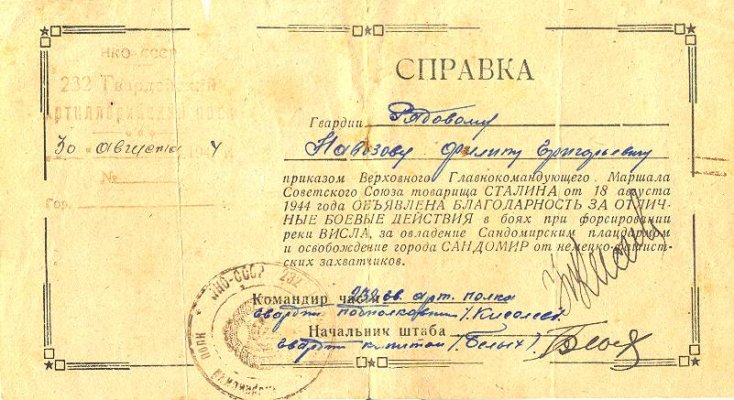 НКО-СССР
232 Гвардейский
Артиллерийский полк
30 августа 4
№
Гор.
СПРАВКА
Гвардии Рядовому
Навозову Филипу Григорьевичу
приказом Верховного Главнокомандующего Маршала
Советского Союза товарища СТАЛИНА от 18 августа
1944 года ОБЪЯВЛЕНА БЛАГОДАРНОСТЬ ЗА ОТЛИЧ-
НЫЕ БОЕВЫЕ ДЕЙСТВИЯ в боях при форсировании
реки ВИСЛА, за овладение Сандомирским плацдармом
и освобождение города САНДОМИР от немецко-фашист-
ских захватчиков.
НКО-СССР 232
полк
Командир части 232 гв. арт. полка
гвардии подполковник
Начальник штаба
гвардии капитан /Белых/